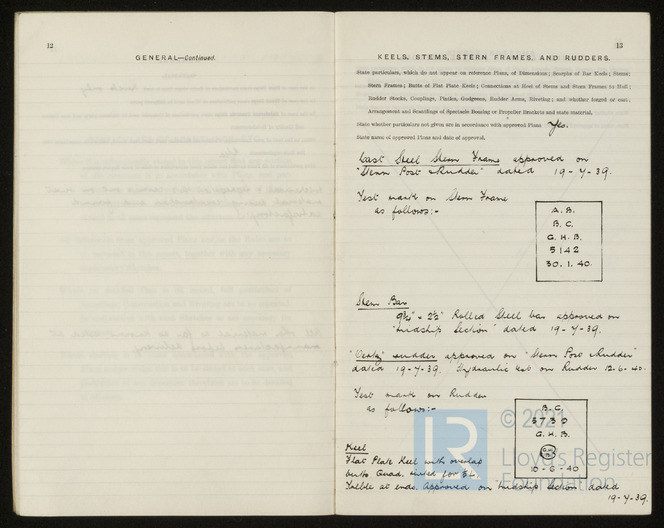 12
GENERAL—Continued.
13
KEELS, STEMS, STERN FRAMES, AND RUDDERS.
State particulars, which do not appear on reference Plans, of Dimensions; Scarphs of Bar Keels; Stems;
Stern Frames; Butts of Flat Plate Keels; Connections at Heel of Stems and Stern Frames to Hull;
Rudder Stocks, Couplings, Pintles, Gudgeons, Rudder Arms, Riveting; and whether forged or cast;
Arrangement and Scantlings of Spectacle Bossing or Propeller Brackets and state material.
State whether particulars not given are in accordance with approved Plans Yes.
State name of approved Plans and date of approval.
Cast Steel Stern Frame approved on
"Stern Post & Rudder" dated 19-7-39.
Test mark on Stern Frame
as follows:-
A.B.
B.C.
G.H.B.
5142
30.1.40.
Stem Bar
Rolled Steel bar approved on
"Midship Section" dated 19-7-39.
rudder approved on "Stern Post & Rudder"
dated 19-7-39. Hydraulic test on Rudder 12-6-40.
Test mark on Rudder
as follows:-
B.C.
5739
G.H.B.
10-6-40
Keel
Flat Plate Keel with overlap
butts Quad. riveted for
Treble at ends. Approved on "Midship Section dated
19-7-39.
© 2021
LR
Lloyd's Register
Foundation